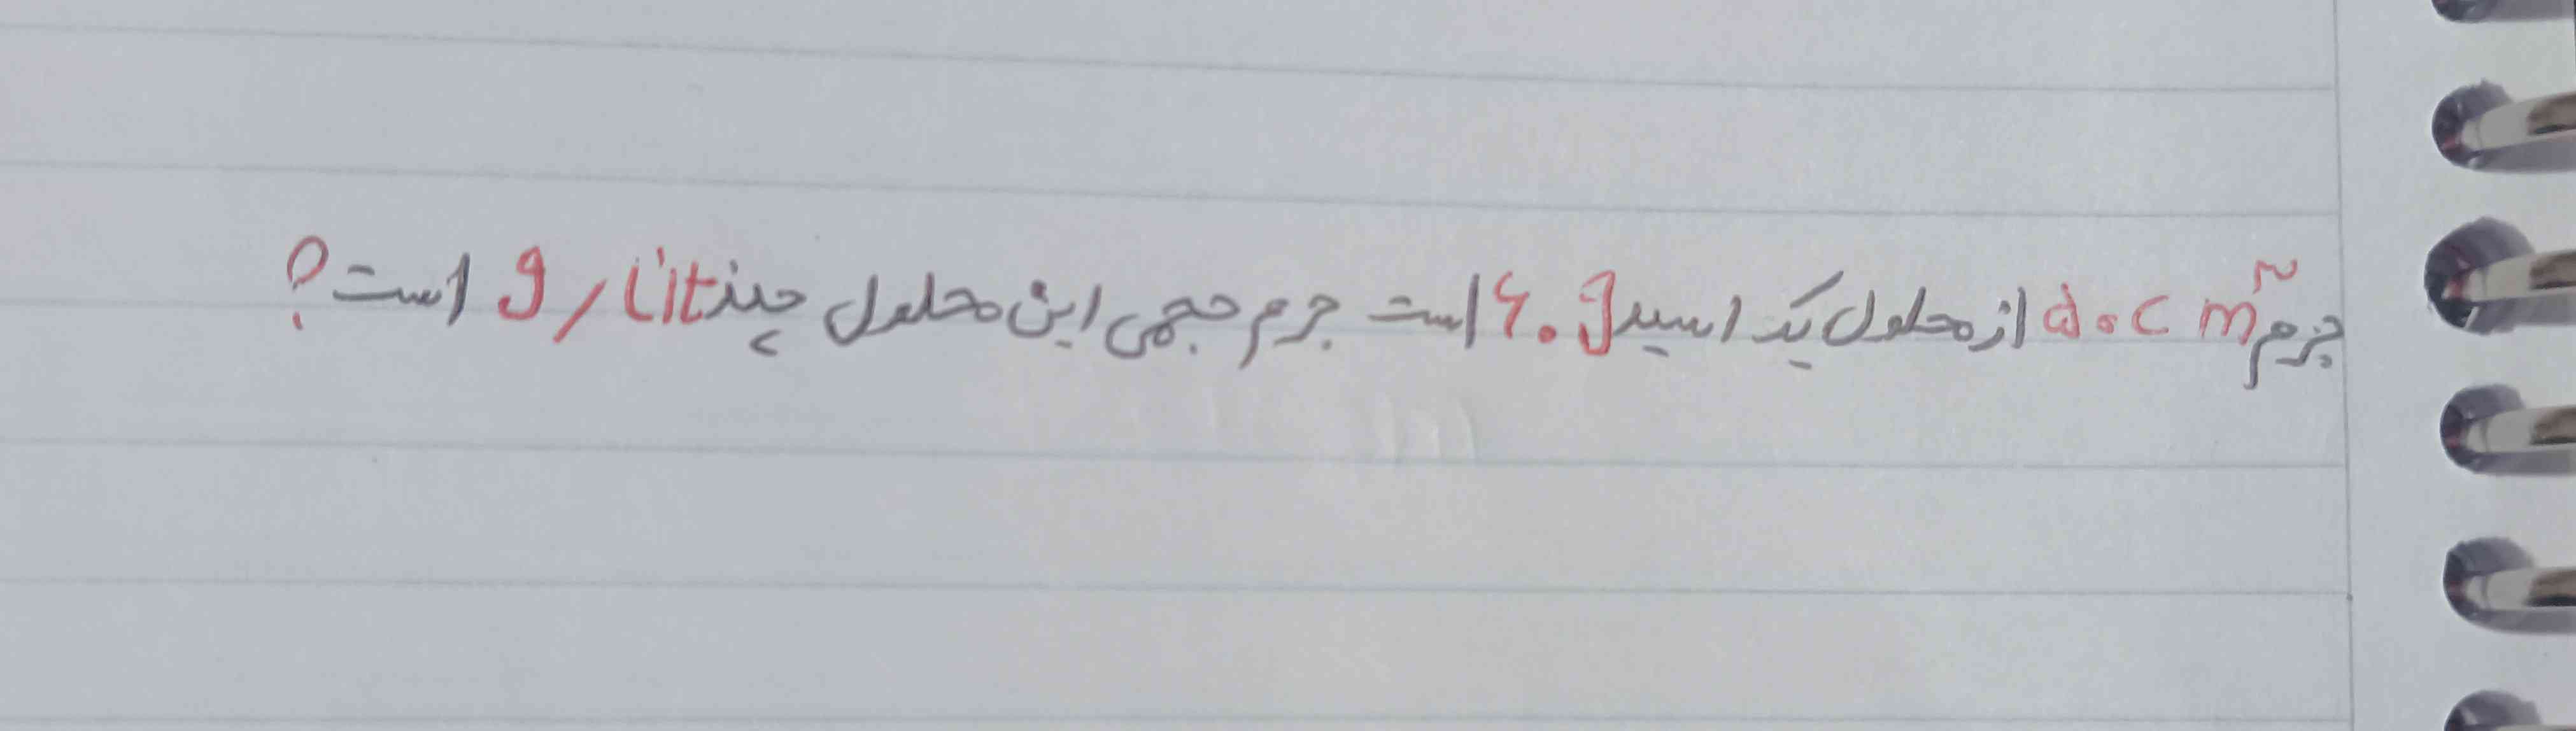 جرم ۵۰cm³ از محلول یک اسید ۶۰g است جرم حجمی این محلول چند g/lit است؟